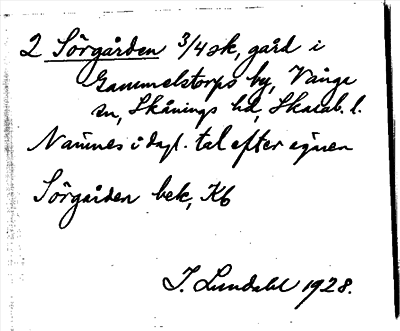 2 Sörgården 3/4 sk, gård i
Gammelstorps by, Vånga
sn, Skånings hd, Skarab. l.
Namnes i dagl. tal efter ägaren
Sörgården bek, Kb
I. Lundahl 1928.